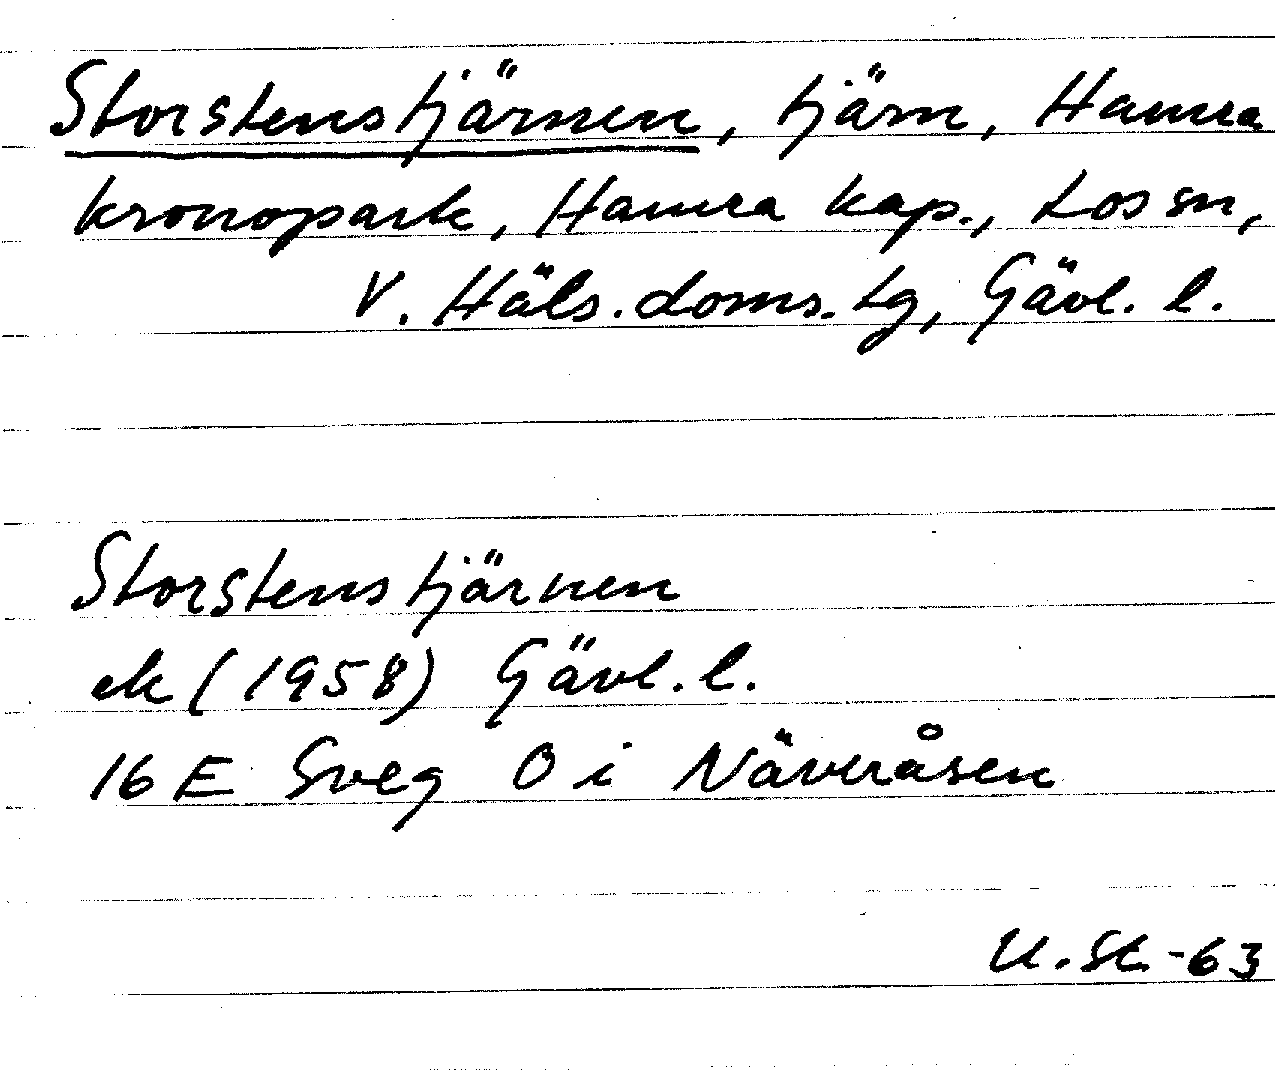 Storstenstjärnen, tjärn, Hamra
kronopark, Hamra kap., Los sn,
V. Häls. doms. tg, Gävl. l.
Storstenstjärnen
ek (1958) Gävl. l.
16 E Sveg Ö i Näveråsen
U. St. -63